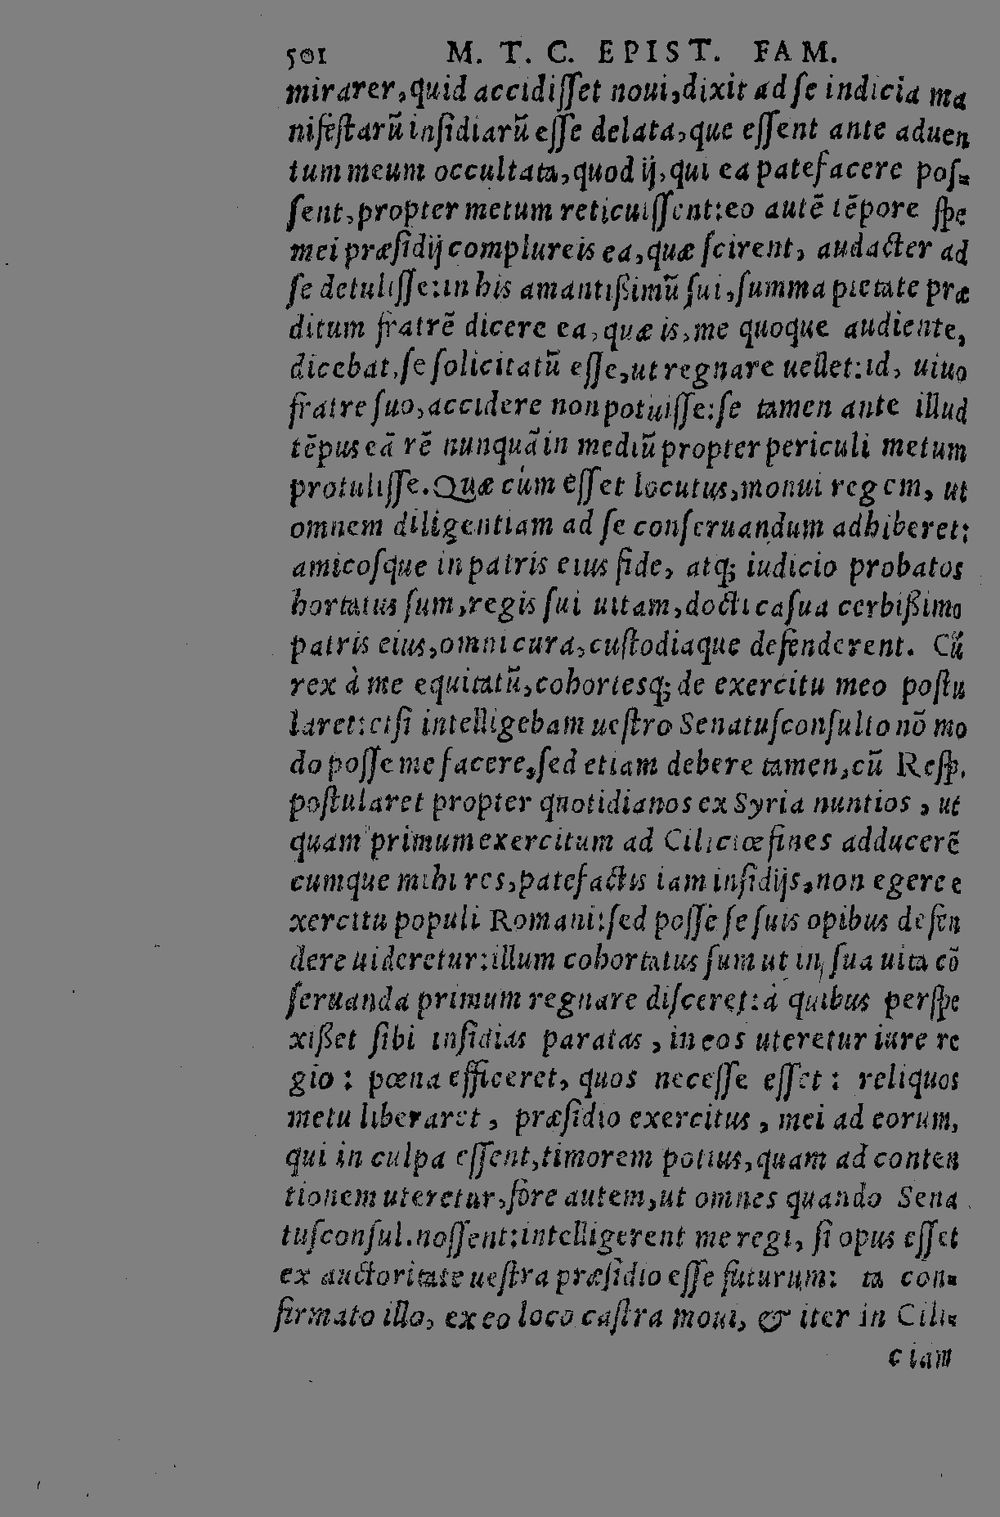 501 M. T. C. EPIST. FAM.
mirarer, quid accidisset noui, dixit ad se indicia ma
nifestarũ insidiarũ esse delata, que essent ante aduen
tum meum occultata, quod ij, qui ea patefacere pos-
sent, propter metum reticuissent: eo autẽ tẽpore spe
mei præsidij complureis ea, quæ scirent, audacter ad
se detulisse: in his amantißimũ sui, summa pietate præ
ditum fratrẽ dicere ea, quæ is, me quoque audiente,
dicebat, se solicitatũ esse, ut regnare uellet: id, uiuo
fratre suo, accidere non potuisse: se tamen ante illud
tẽpus eã rẽ nunquã in mediũ propter periculi metum
protulisse. Quæ cùm esset locutus, monui regem, ut
omnem diligentiam ad se conseruandum adhiberet:
amicosque in patris eius fide, atq; iudicio probatos
hortatus sum, regis sui uitam, docti casua cerbißimo
patris eius, omni cura, custodiaque defenderent. Cũ
rex à me equitatũ, cohortesq; de exercitu meo postu
laret: etsi intelligebam uestro Senatusconsulto nõ mo
do posse me facere, sed etiam debere tamen, cũ Resp.
postularet propter quotidianos ex Syria nuntios, ut
quam primum exercitum ad Ciliciæ fines adducerẽ
cumque mihi res, patefactis iam insidijs, non egere e
xercitu populi Romani: sed posse se suis opibus defen
dere uideretur: illum cohortatus sum ut in sua uita cõ
seruanda primum regnare disceret: à quibus perspe
xißet sibi insidias paratas, in eos uteretur iure re
gio: pœna efficeret, quos necesse esset: reliquos
metu liberaret, præsidio exercitus, mei ad eorum,
qui in culpa essent, timorem potius, quam ad conten
tionem uteretur, fore autem, ut omnes quando Sena
tusconsul. nossent: intelligerent me regi, si opus esset
ex auctoritate uestra præsidio esse futurum: ta con-
firmato illo, ex eo loco castra moui, & iter in Cili-
ciam